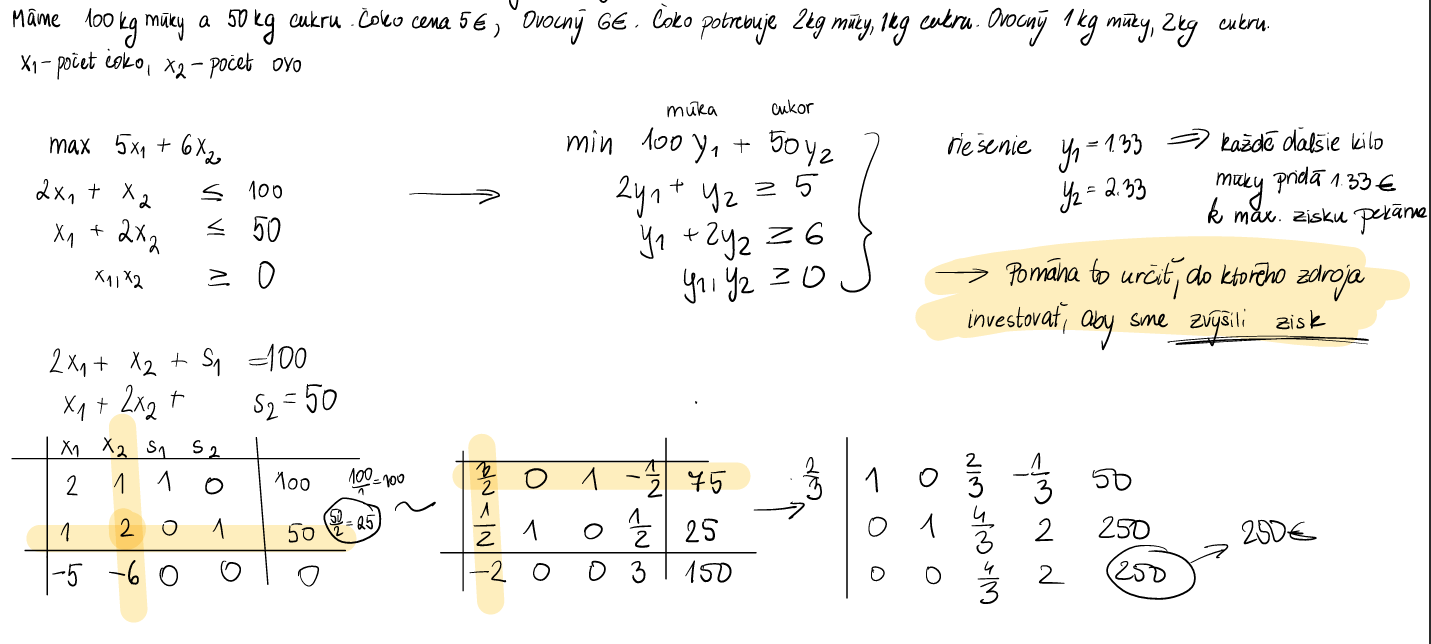 Máme 100kg múky a 50kg cukru. Čoko cena 5€, Ovocný 6€. Čoko potrebuje 2kg múky, 1kg cukru. Ovocný 1kg múky, 2kg cukru.
x₁-počet čoko, x₂-počet ovo
max 5x₁ + 6x₂
2x₁ + x₂ ≤ 100
x₁ + 2x₂ ≤ 50
x₁,x₂ ≥ 0
múka cukor
min 100y₁ + 50y₂
2y₁ + y₂ ≥ 5
y₁ + 2y₂ ≥ 6
y₁,y₂ ≥ 0
riešenie y₁ = 1.33 ⇒ každé ďalšie kilo
y₂ = 2.33 múky pridá 1.33€
k max. zisku pekárne
→ Pomáha to určiť, do ktorého zdroja
investovať, aby sme zvýšili zisk
2x₁ + x₂ + s₁ = 100
x₁ + 2x₂ + s₂ = 50
x₁ x₂ s₁ s₂
2 1 1 0 100 100/1=100
1 2 0 1 50 50/2=25
-5 -6 0 0 0
~
0 1 -1/2 75
1/2 1 0 1/2 25
-2 0 0 3 150
→
2/3
1 0 2/3 -1/3 50
0 1 4/3 2 250
0 0 4/3 2 250 → 250€